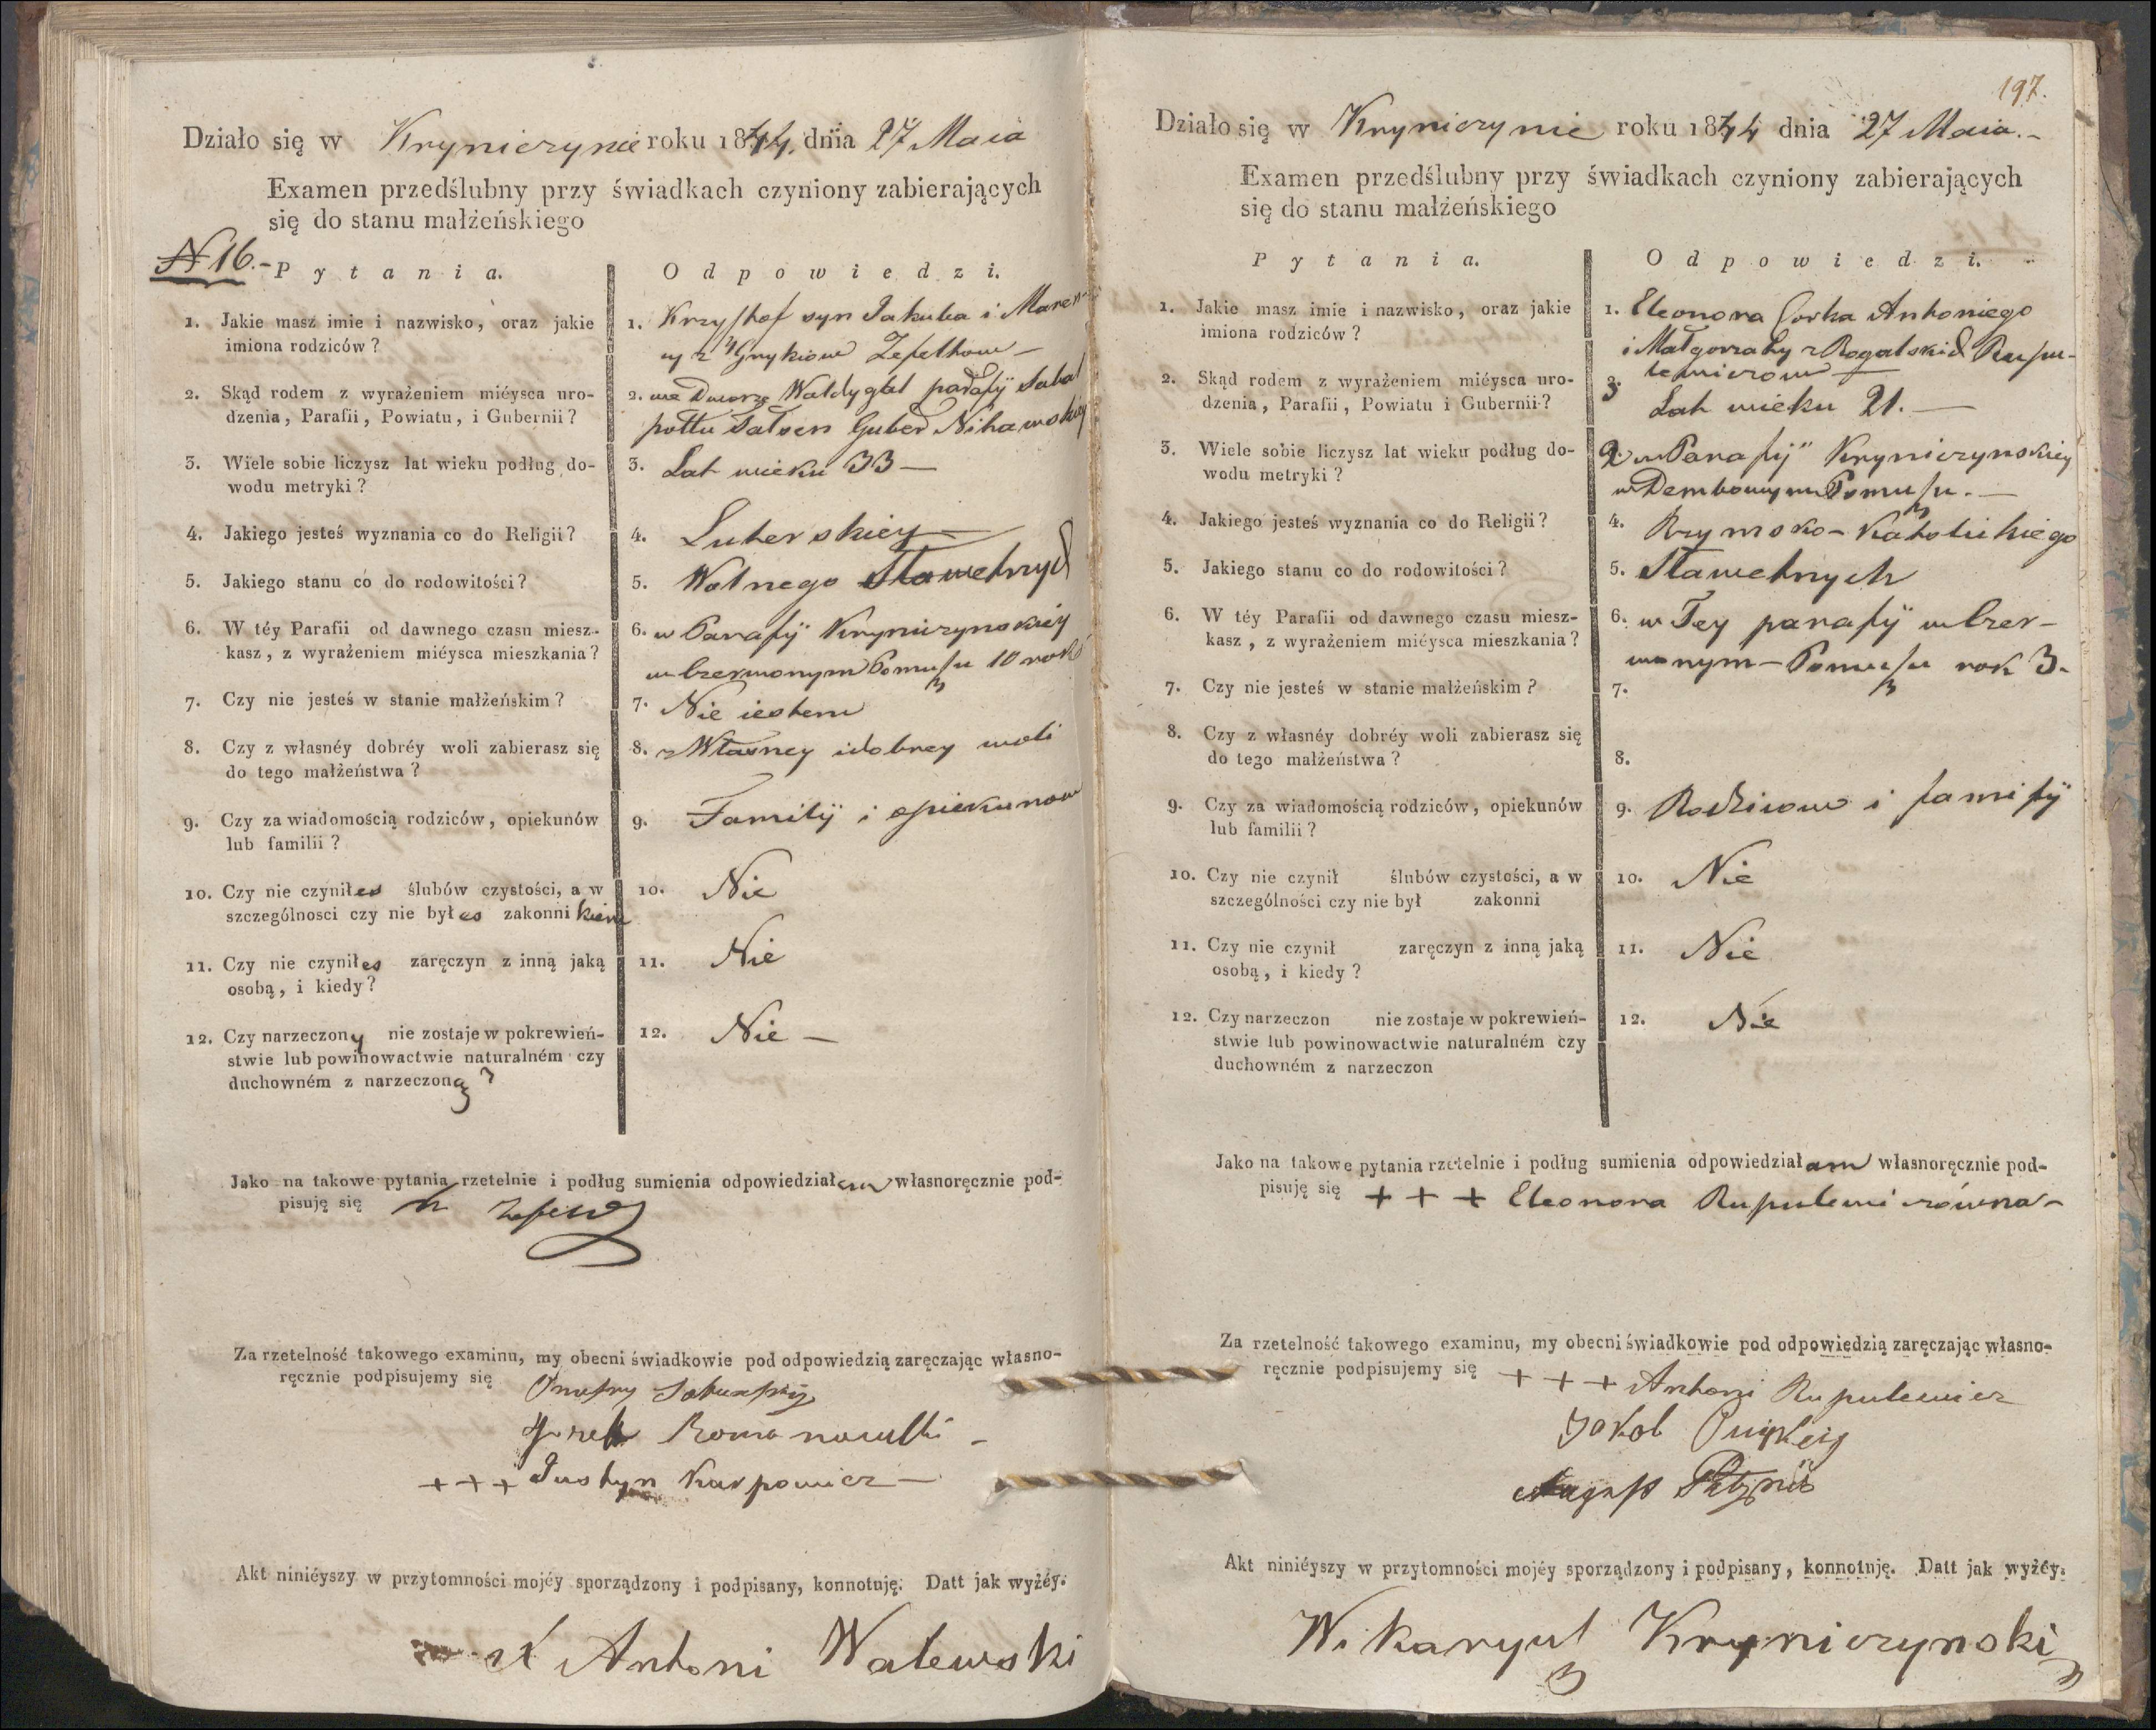 Działo się w Kryniczynie roku 1844. dnia 27 Maia
Examen przedślubny przy świadkach czyniony zabierających
się do stanu małżeńskiego
N 16.-
Pytania.
Odpowiedzi.
1. Jakie masz imie i nazwisko, oraz jakie
imiona rodziców?
1. Krzysztof syn Jakuba i
2. Skąd rodem z wyrażeniem miéysca uro-
dzenia, Parafii, Powiatu, i Gubernii?
2. we Dworze parafij
Guber
3. Wiele sobie liczysz lat wieku podług do-
wodu metryki?
3. Lat wieku 33 —
4. Jakiego jesteś wyznania co do Religii?
4. Luterskiey
5. Jakiego stanu co do rodowitości?
5. Wolnego Sławetnych
6. W téy Parafii od dawnego czasu miesz-
kasz, z wyrażeniem miéysca mieszkania?
6. w Parafij Kryniczynskiey
w Czerwonym Pomuszu 10 rok
7. Czy nie jesteś w stanie małżeńskim?
7. Nie iestem
8. Czy z własnéy dobréy woli zabierasz się
do tego małżeństwa?
8. z Własney i dobrey woli
9. Czy za wiadomością rodziców, opiekunów
lub familii?
9. Familij i opiekunow
10. Czy nie czyniłes ślubów czystości, a w
szczególnosci czy nie byłes zakonnikiem
10. Nie
11. Czy nie czyniłes zaręczyn z inną jaką
osobą, i kiedy?
11. Nie
12. Czy narzeczony nie zostaje w pokrewień-
stwie lub powinowactwie naturalném czy
duchowném z narzeczoną?
12. Nie —
Jako na takowe pytania rzetelnie i podług sumienia odpowiedziałem własnoręcznie pod-
pisuję się
Za rzetelność takowego examinu, my obecni świadkowie pod odpowiedzią zaręczając własno-
ręcznie podpisujemy się
Romanowski
+++ Justyn Karpowicz —
Akt niniéyszy w przytomności mojéy sporządzony i podpisany, konnotuję. Datt jak wyżéy.
X Antoni Walewski
197.
Działo się w Kryniczynie roku 1844 dnia 27 Maia.-
Examen przedślubny przy świadkach czyniony zabierających
się do stanu małżeńskiego
Pytania.
Odpowiedzi.
1. Jakie masz imie i nazwisko, oraz jakie
imiona rodziców?
1. Eleonora Corka Antoniego
i Małgorzaty z Rogalskich Rupu-
lewiczow
2. Skąd rodem z wyrażeniem miéysca uro-
dzenia, Parafii, Powiatu i Gubernii?
3 Lat wieku 21. —
3. Wiele sobie liczysz lat wieku podług do-
wodu metryki?
2. w Parafij Kryniczynskiey
w Dembowym Pomuszu. —
4. Jakiego jesteś wyznania co do Religii?
4. Rzymsko-Katolickiego
5. Jakiego stanu co do rodowitości?
5. Sławetnych
6. W téy Parafii od dawnego czasu miesz-
kasz, z wyrażeniem miéysca mieszkania?
6. w Tey parafij w Czer-
wonym-Pomuszu rok 3.
7. Czy nie jesteś w stanie małżeńskim?
7.
8. Czy z własnéy dobréy woli zabierasz się
do tego małżeństwa?
8.
9. Czy za wiadomością rodziców, opiekunów
lub familii?
9. Rodzicow i familij
10. Czy nie czynił ślubów czystości, a w
szczególności czy nie był zakonni
10. Nie
11. Czy nie czynił zaręczyn z inną jaką
osobą, i kiedy?
11. Nie
12. Czy narzeczon nie zostaje w pokrewień-
stwie lub powinowactwie naturalném czy
duchowném z narzeczon
12. Nie
Jako na takowe pytania rzetelnie i podług sumienia odpowiedziałam własnoręcznie pod-
pisuję się + + + Eleonora Rupulewiczówna-
Za rzetelność takowego examinu, my obecni świadkowie pod odpowiedzią zaręczając własno-
ręcznie podpisujemy się +++ Antoni Rupulewicz
Jakob
Akt niniéyszy w przytomności mojéy sporządzony i podpisany, konnotuję. Datt jak wyżéy.
Wikaryusz Kryniczynski